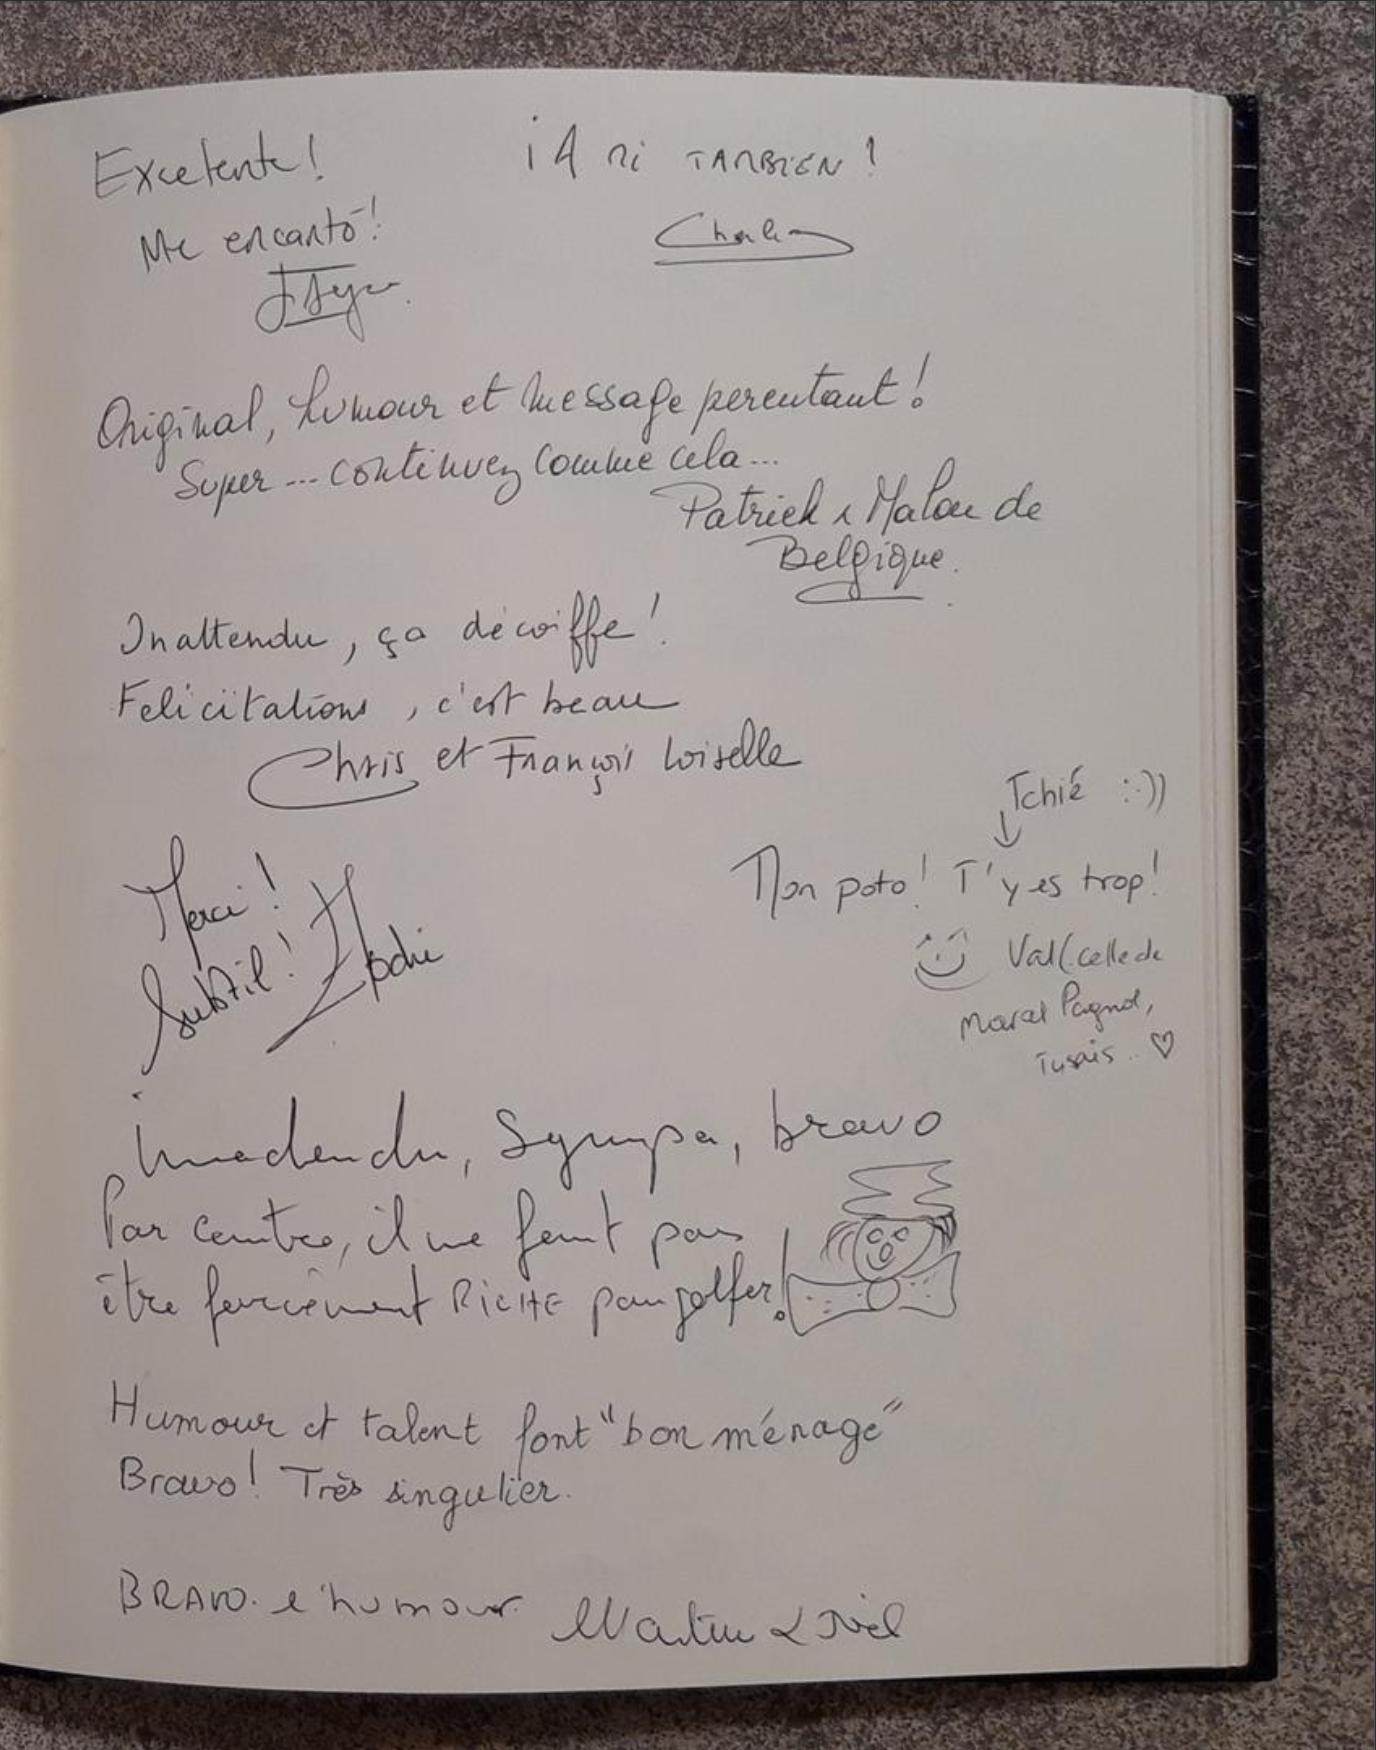 Excelente!
Me encantó!
¡A mi TAMBIEN!
Original, humour et message percutant!
Super... continuez comme cela...
Patrick & Malou de
Belgique.
Inattendu, ça décoiffe!
Felicitations, c'est beau
Chris et François Loiselle
Merci!
Subtil!
Tchié :-))
↓
Mon poto! T'y es trop!
Val (celle de
Marcel Pagnol,
Tu sais.. ♡
Inattendu, Sympa, bravo
Par contre, il ne faut pas
être forcément RICHE pour golfer!
Humour et talent font "bon ménage"
Bravo! Très singulier.
BRAVO. l'humour
& Joël